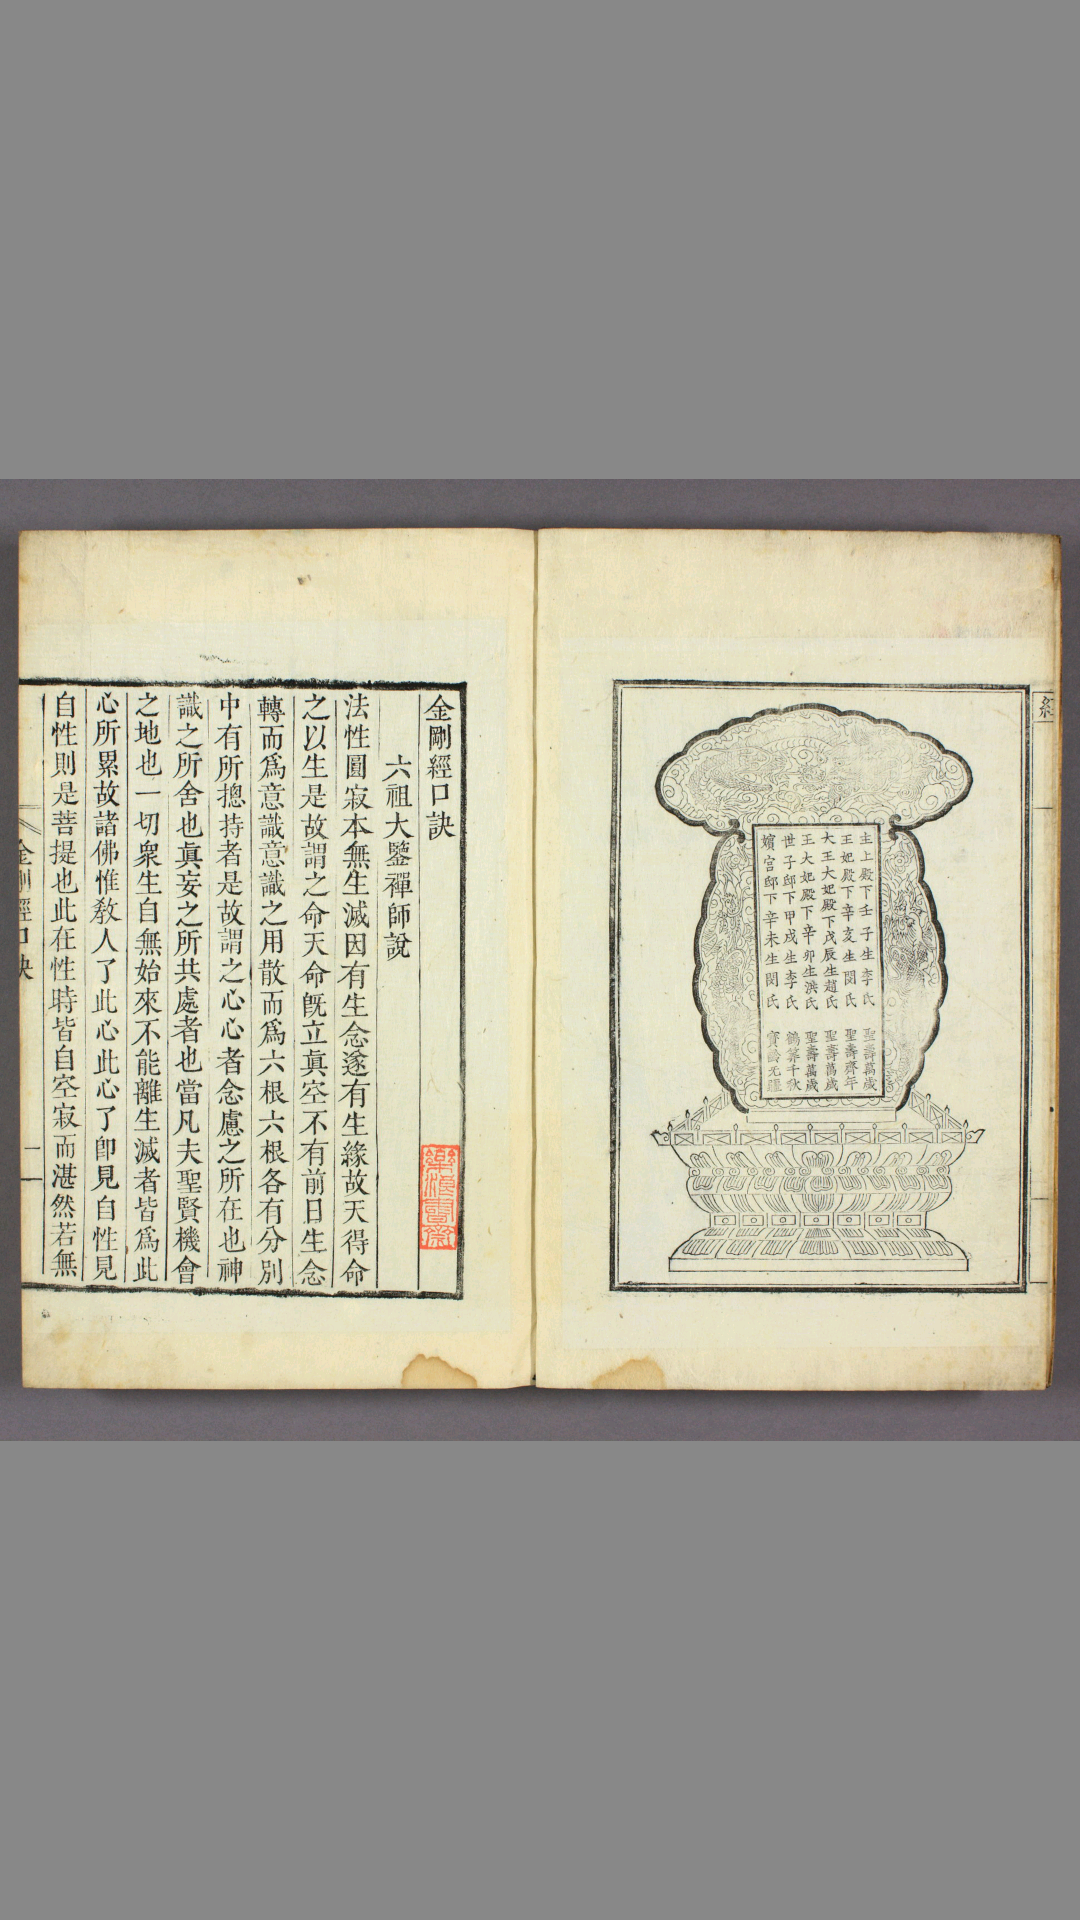 經
主上殿下壬子生李氏 聖壽萬歲
王妃殿下辛亥生閔氏 聖壽齊年
大王大妃殿下戊辰生趙氏 聖壽萬歲
王大妃殿下辛卯生洪氏 聖壽萬歲
世子邸下甲戌生李氏 鶴筭千秋
嬪宮邸下辛未生閔氏 寶齡无疆
金剛經口訣
六祖大鑒禪師說
法性圓寂本無生滅因有生念遂有生緣故天得命
之以生是故謂之命天命旣立眞空不有前日生念
轉而爲意識意識之用散而爲六根六根各有分別
中有所摠持者是故謂之心心者念慮之所在也神
識之所舍也眞妄之所共處者也當凡夫聖賢機會
之地也一切衆生自無始來不能離生滅者皆爲此
心所累故諸佛惟教人了此心此心了卽見自性見
自性則是菩提也此在性時皆自空寂而湛然若無
金剛經口訣
一